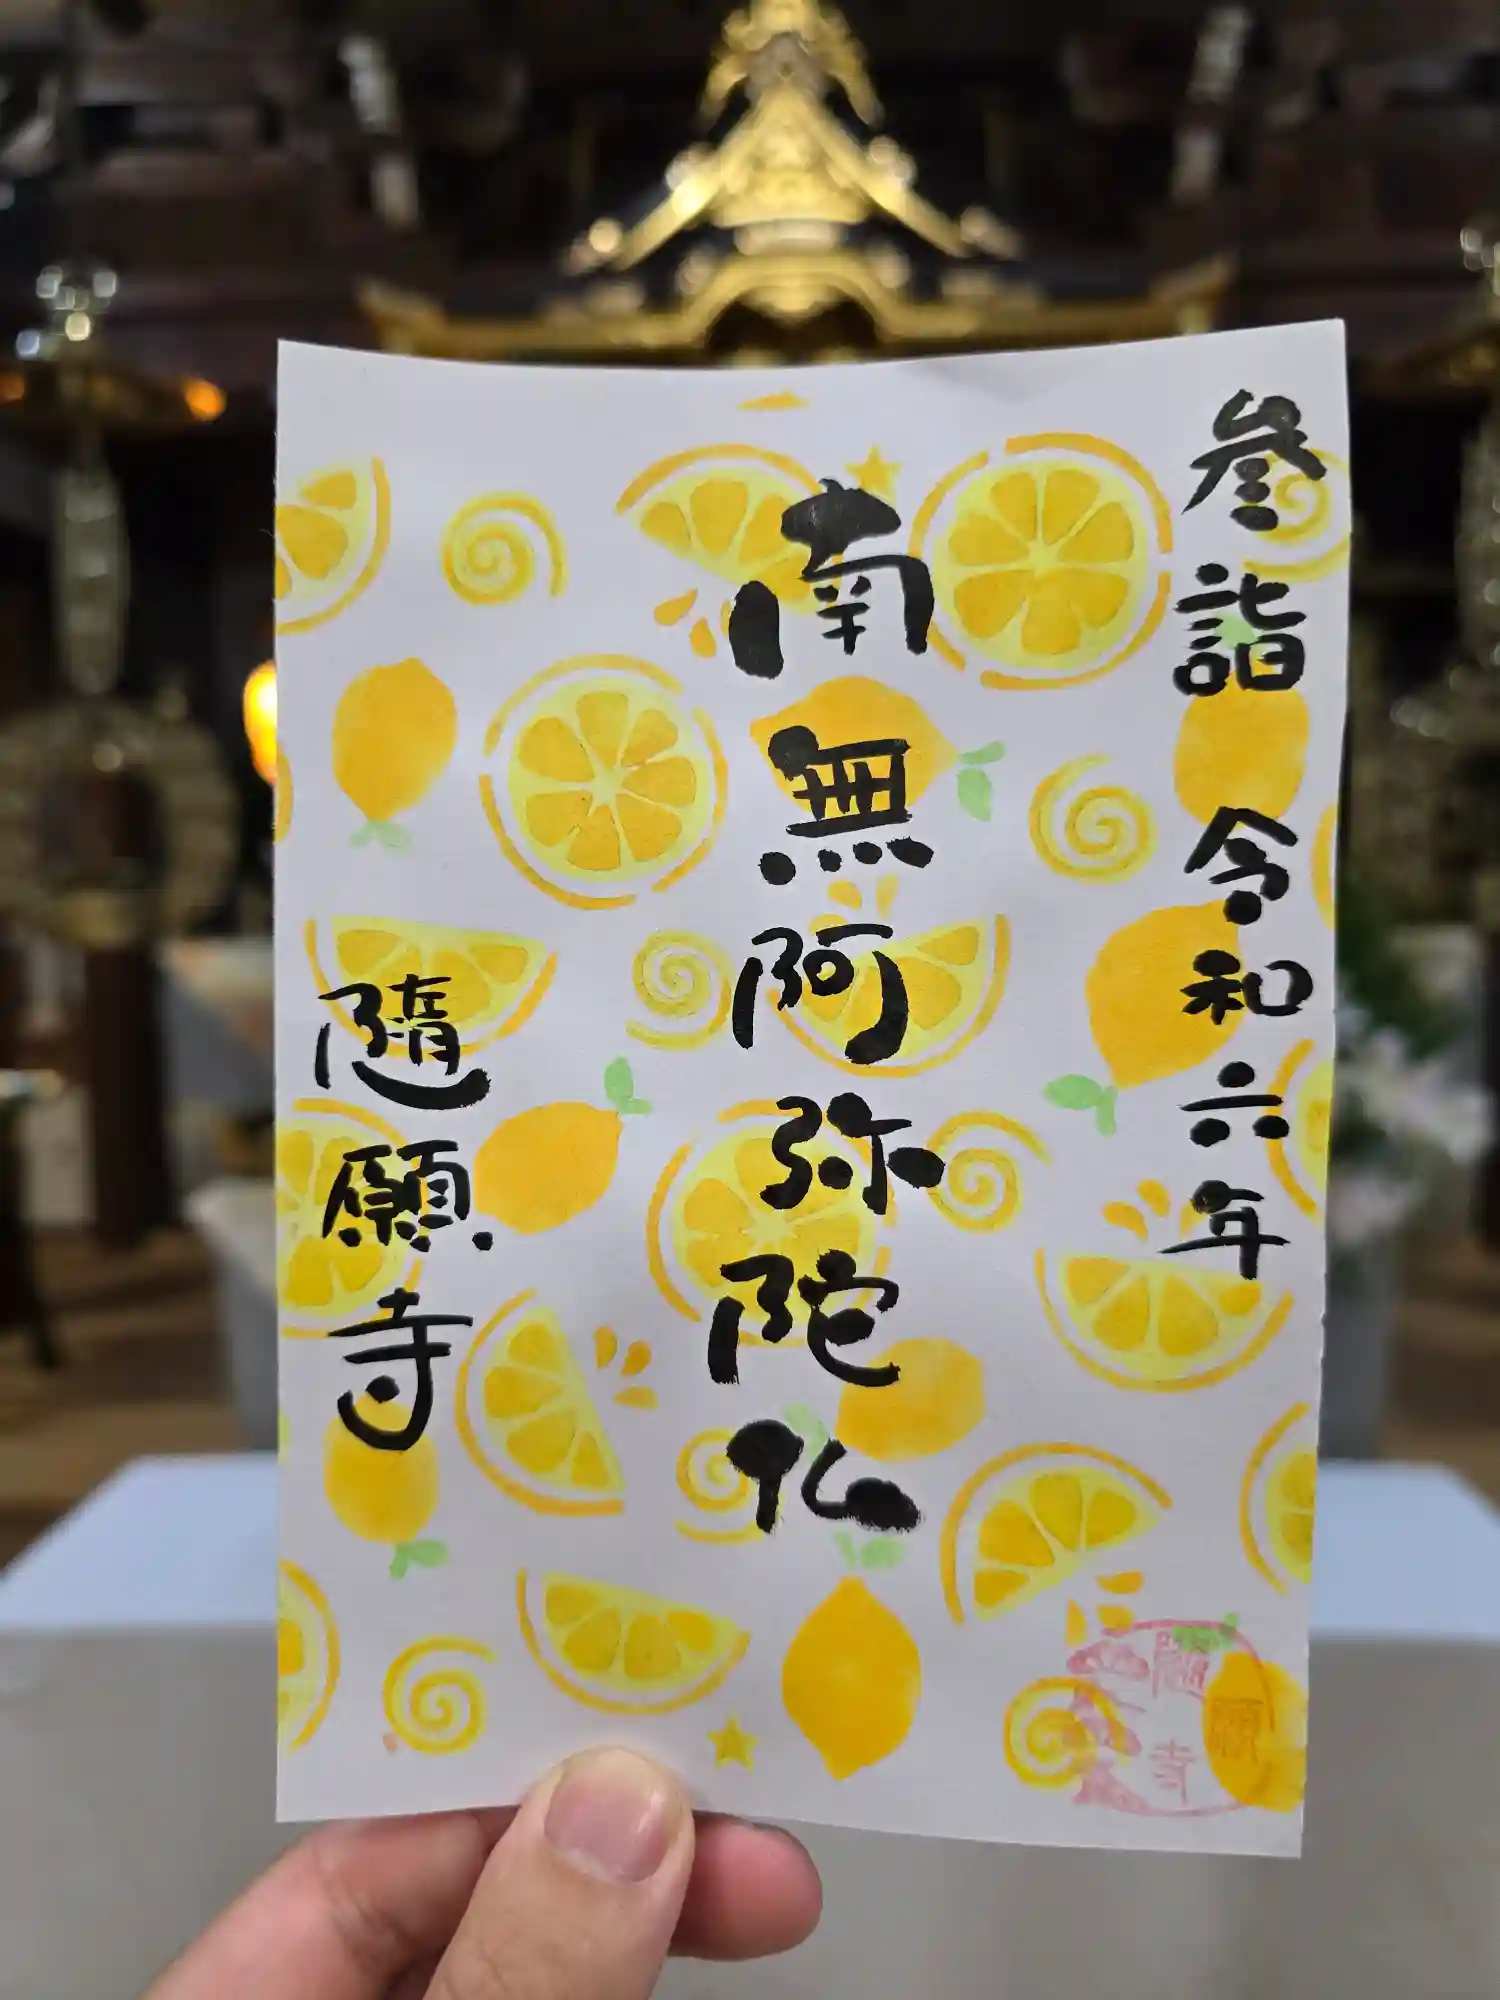 參詣 令和六年
南無阿弥陀仏
隨願寺
隨願寺